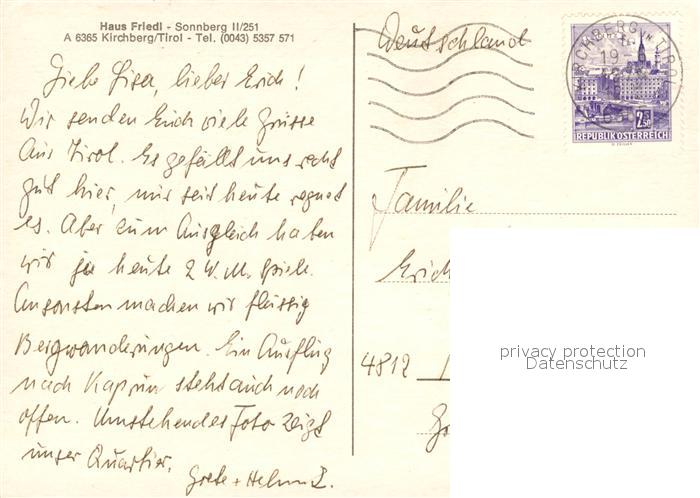 Haus Friedl - Sonnberg II/251
A 6365 Kirchberg/Tirol - Tel. (0043) 5357 571
Liebe Lisa, lieber Erich!
Wir senden Euch viele Grüsse
aus Tirol. Es gefällt uns recht
gut hier, nur seit heute regnet
es. Aber zum Ausgleich haben
wir ja heute 2 W.M. Spiele.
Ansonsten machen wir fleissig
Bergwanderungen. Ein Ausflug
nach Kaprun steht auch noch
offen. Umstehendes Foto zeigt
unser Quartier.
Grete + Helmut
Deutschland
KIRCHBERG IN TIROL
19
2.50
REPUBLIK ÖSTERREICH
Familie
Erich
4812
privacy protection
Datenschutz